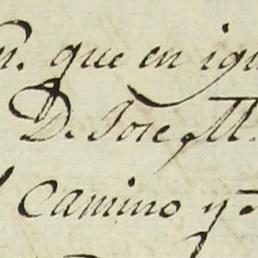 que en igu
D. Jose M.
camino y